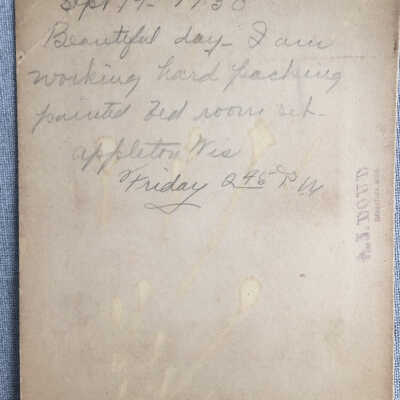 Sept 19 - 1930
Beautiful day - I am
working hard packing
painted bed room set -
appleton Wis
Friday 2 45 P M